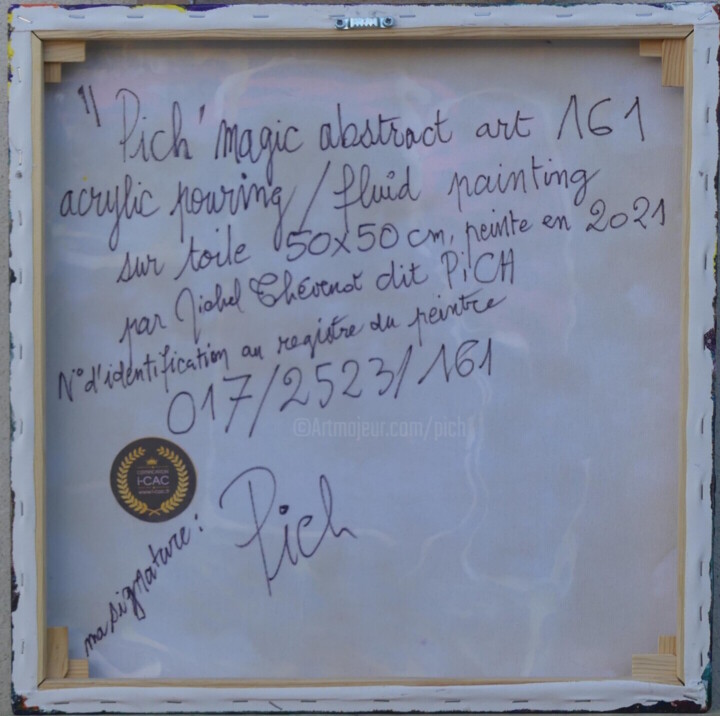 " Pich' magic abstract art 161
acrylic pouring / fluid painting
sur toile 50x50 cm, peinte en 2021
par Michel Thévenot dit PiCH
N° d'identification au registre du peintre
017/2523/161
©Artmajeur.com/pich
i-CAC
ma signature :
Pich